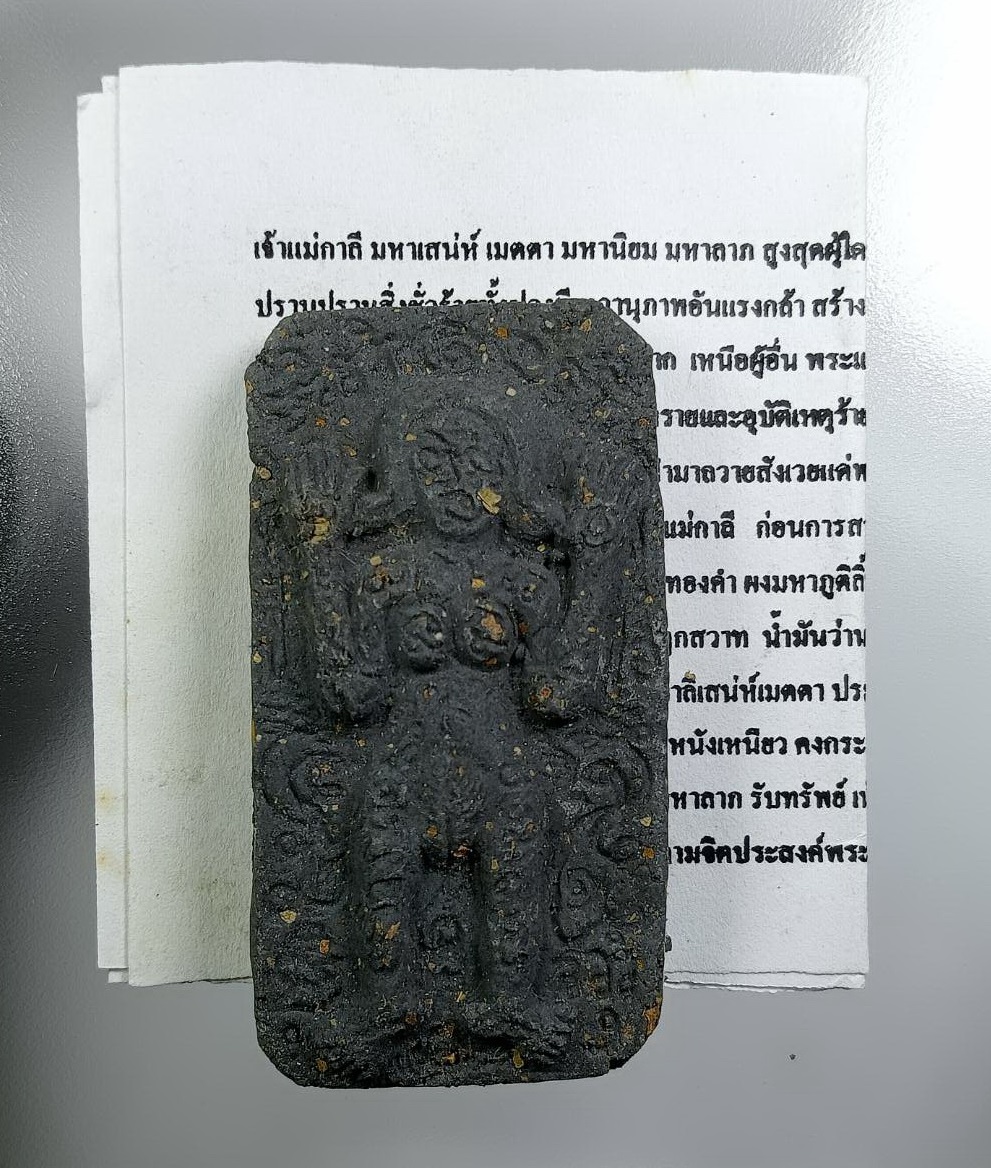 เจ้าแม่กาลี มหาเสน่ห์ เมตตา มหานิยม มหาลาภ สูงสุดผู้ใด
อันแรงกล้า สร้าง
เหนือผู้อื่น พระแ
รายและอุบัติเหตุร้าย
มาถวายสังเวยแด่พ
แม่กาลี ก่อนการส
ทองคำ ผงมหาภูติ
กสวาท น้ำมันว่าน
าลีเสน่ห์เมตตา ประ
หนังเหนียว คงกระ
หาลาภ รับทรัพย์ เ
ามจิตประสงค์พระ